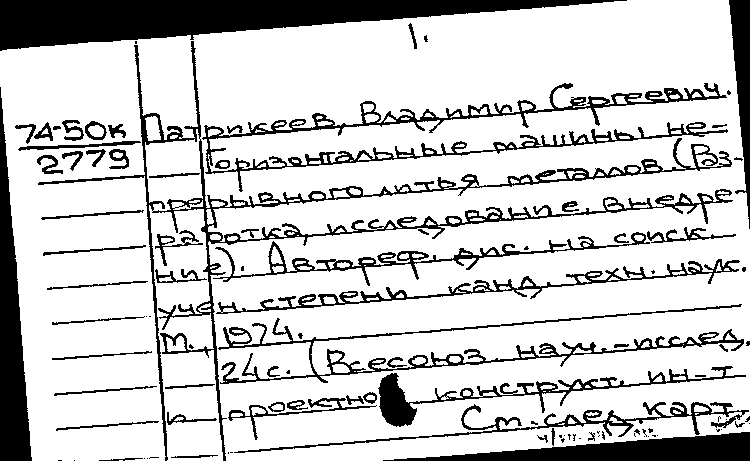 1.
74-50к Патрикеев, Владимир Сергеевич.
2779 Горизонтальные машины не-
прерывного литья металлов. (Раз-
работка, исследование, внедре-
ние). Автореф. дис. на соиск.
учен. степени канд. техн. наук.
М., 1974.
24с. (Всесоюз. науч.-исслед.
и проектно конструкт. ин-т
См. след. карт.